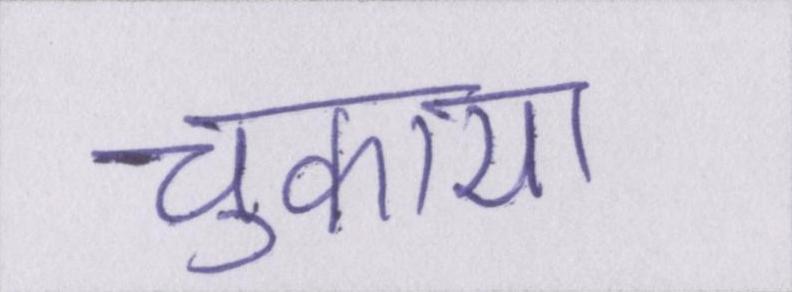 चुकाया